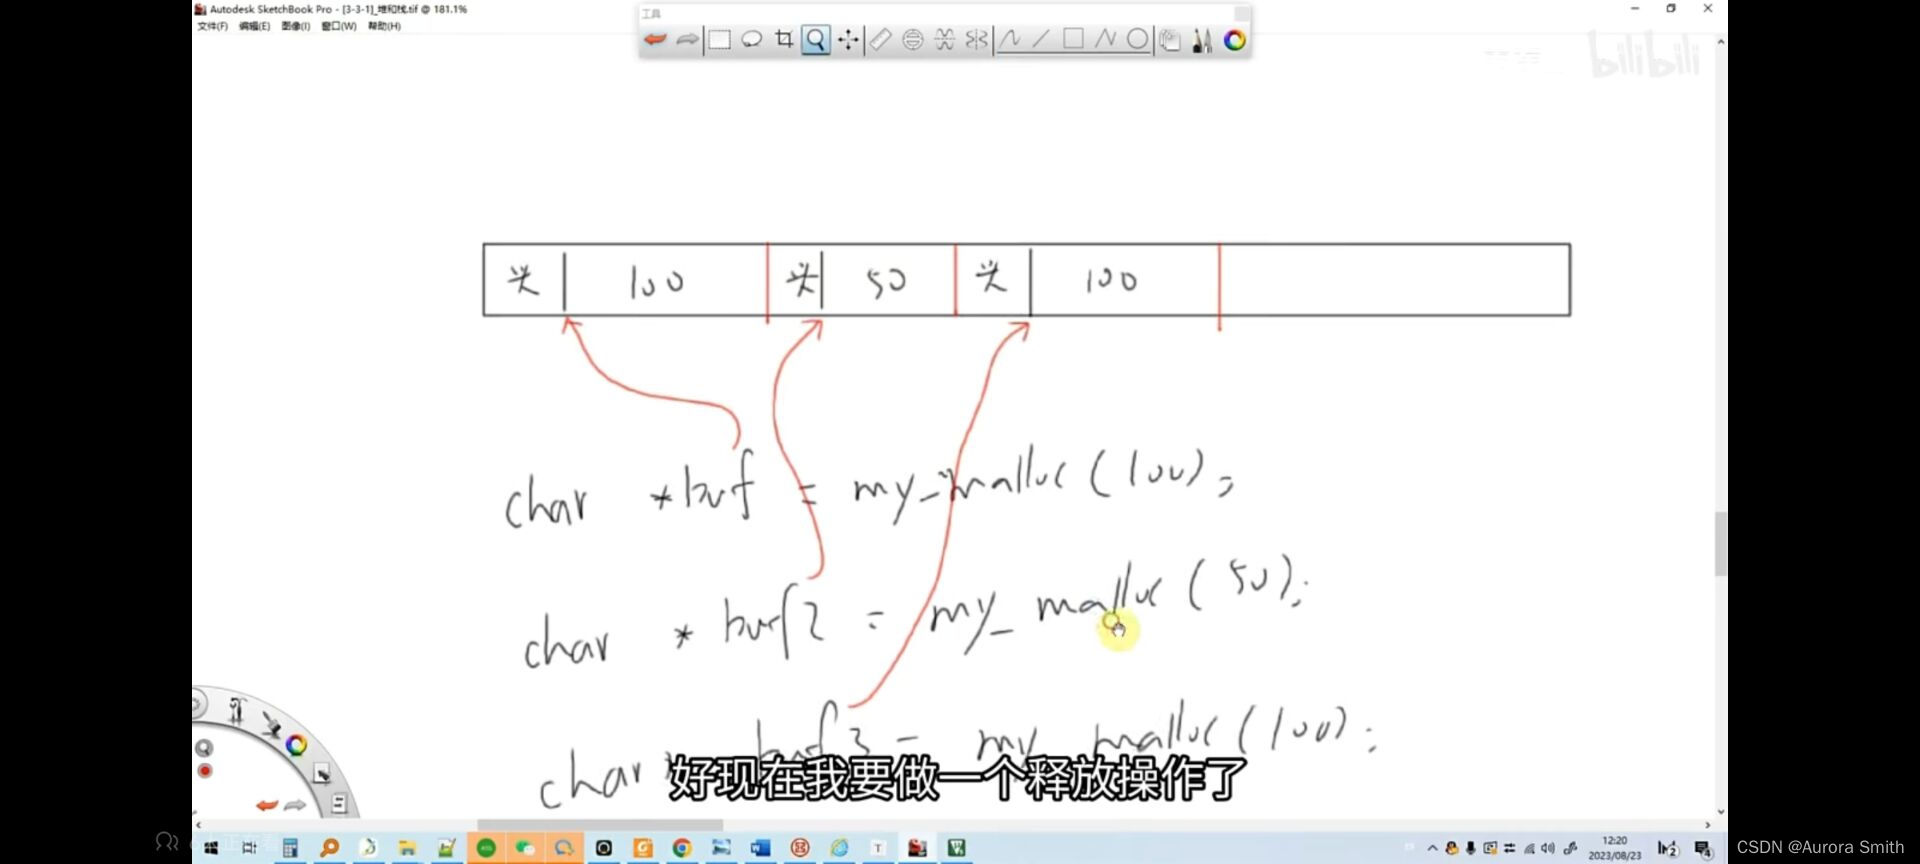 Autodesk SketchBook Pro - [3-3-1]_堆和栈.tif @ 181.1%
文件(F) 编辑(E) 图像(I) 窗口(W) 帮助(H)
工具
bilibili
头 100 头 50 头 100
char *buf = my_malloc(100);
char * buf2 = my_malloc(50);
char * buf3 = my_malloc(100);
好现在我要做一个释放操作了
12:20
2023/08/23
CSDN @Aurora Smith